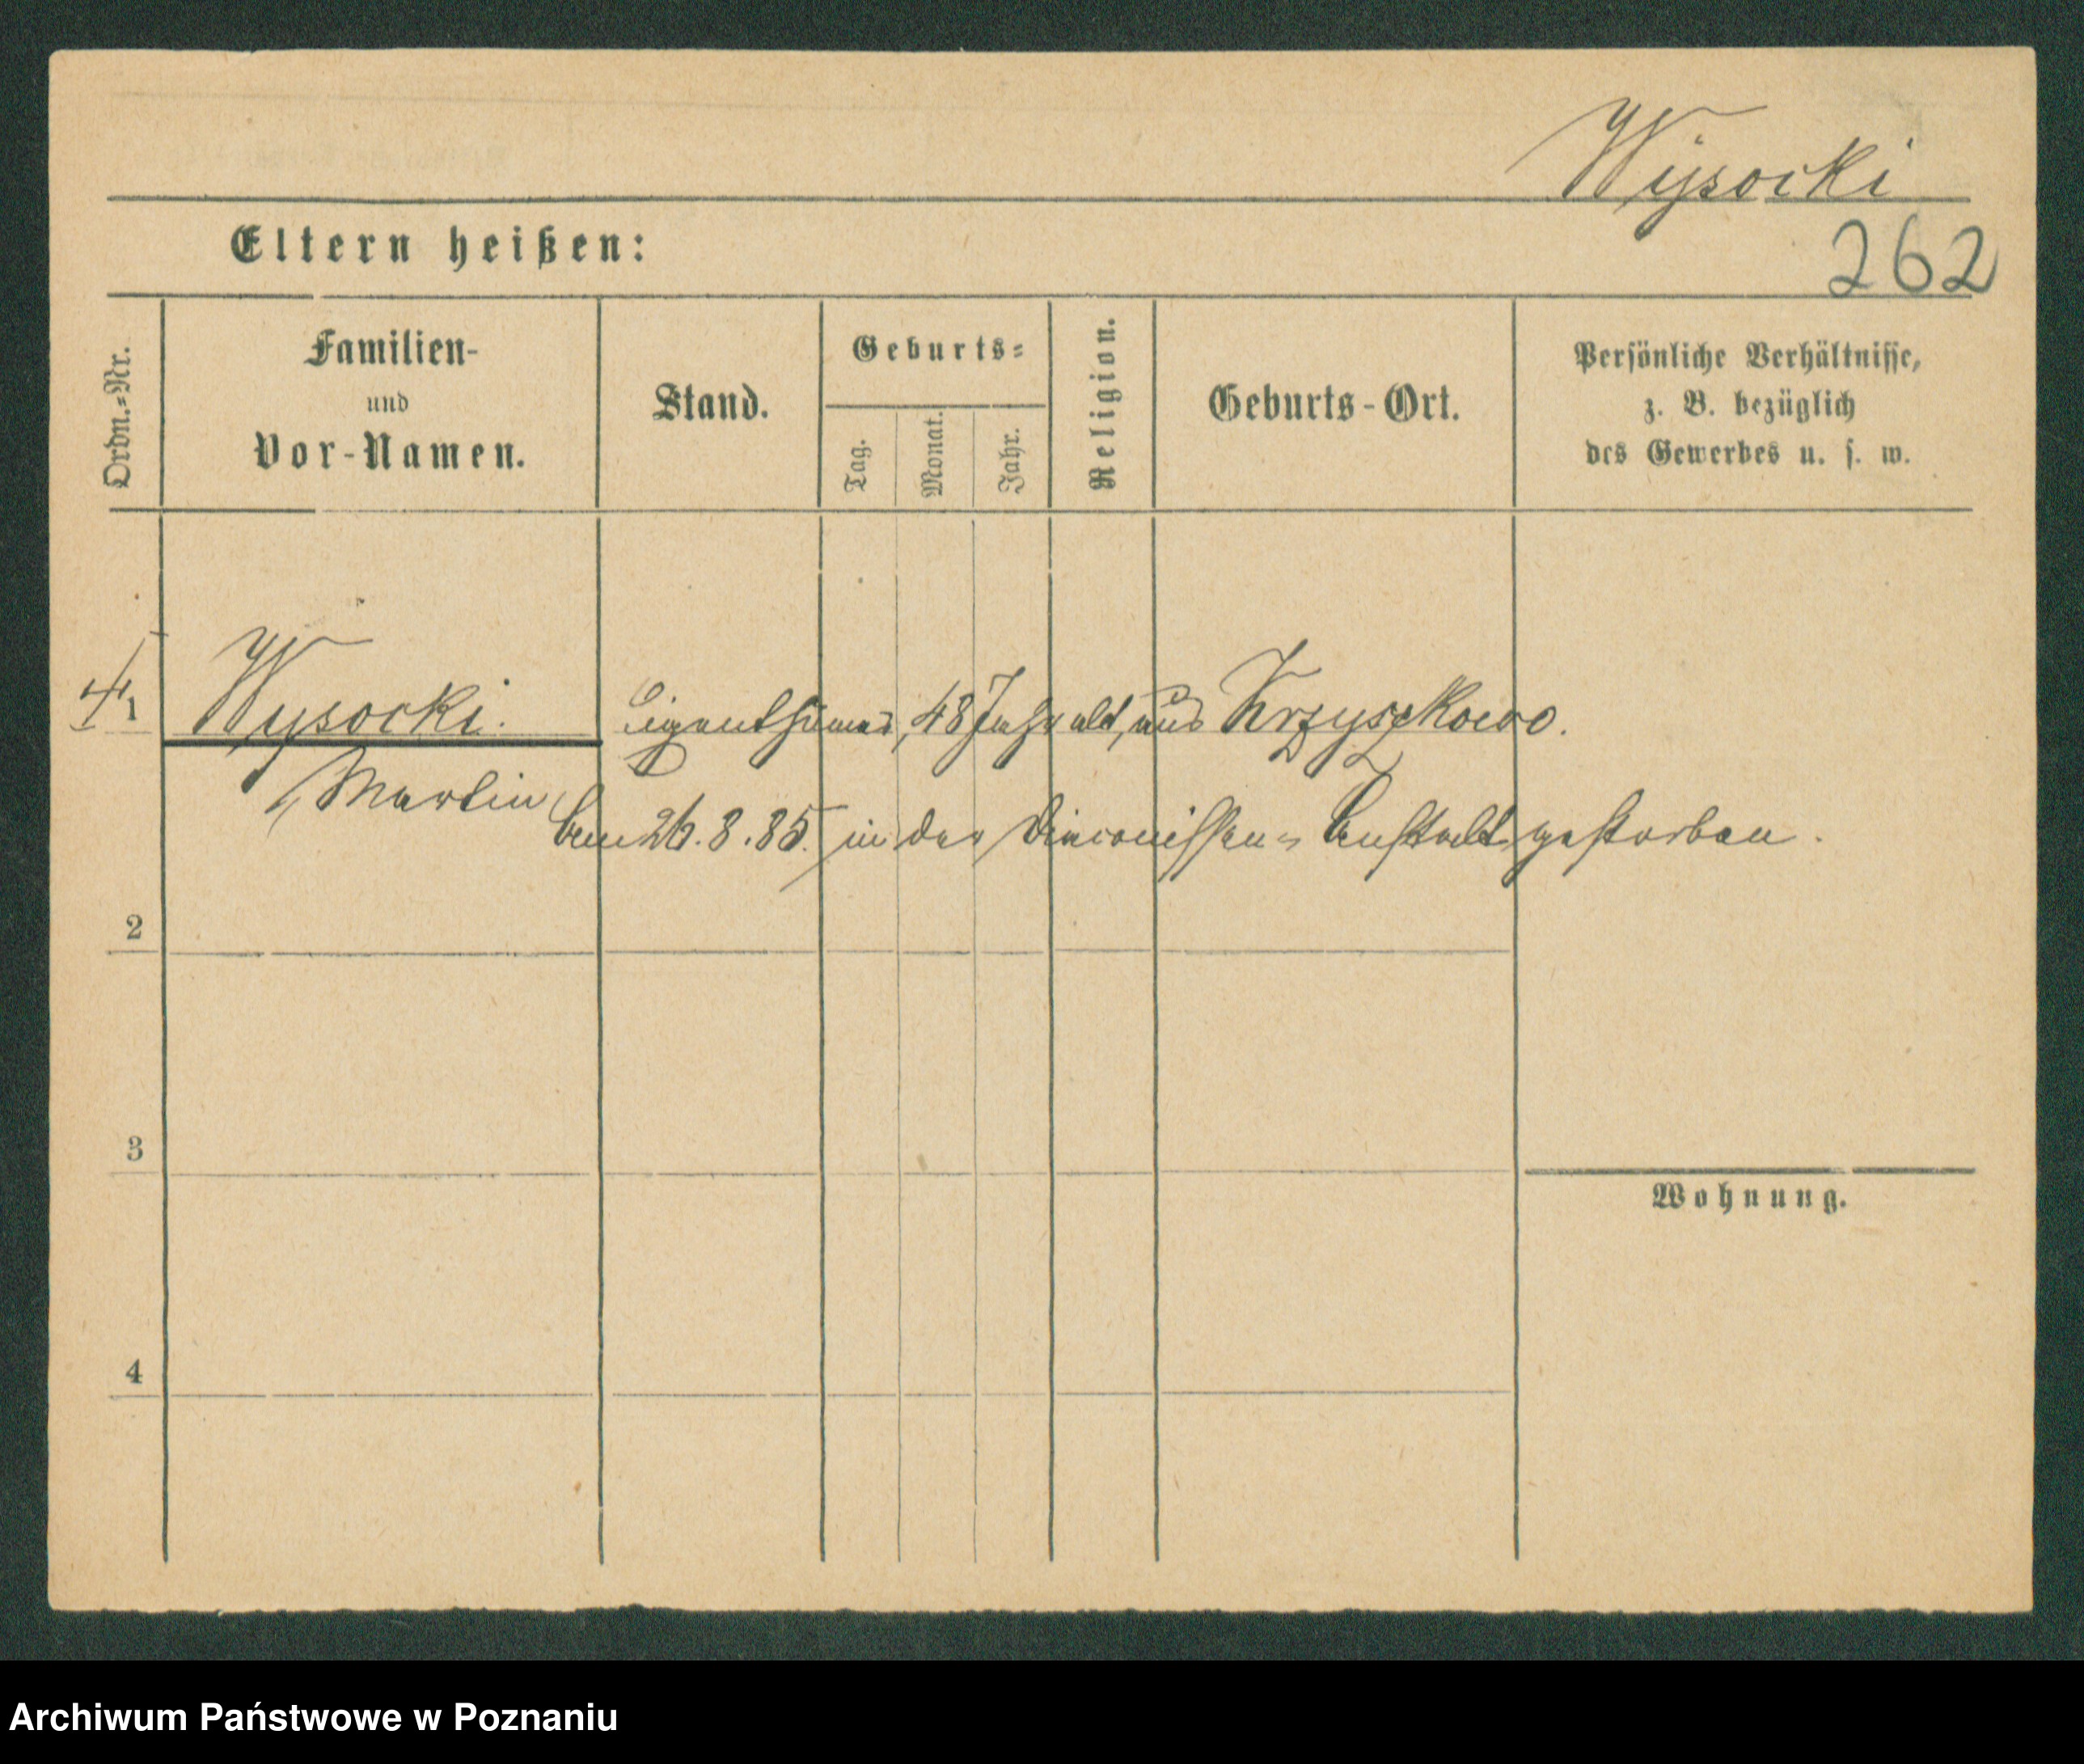 Wysocki
Eltern heißen:
262
Ordn.=Nr.
Familien-
und
Vor-Namen.
Stand.
Geburts=
Tag.
Monat.
Jahr.
Religion.
Geburts-Ort.
Persönliche Verhältnisse,
z. B. bezüglich
des Gewerbes u. s. w.
1
Wysocki. Eigenthümer, 48 Jahr alt, aus
Martin
am 26.8.85. in der Diaconissen= Anstalt gestorben.
2
3
Wohnung.
4
Archiwum Państwowe w Poznaniu